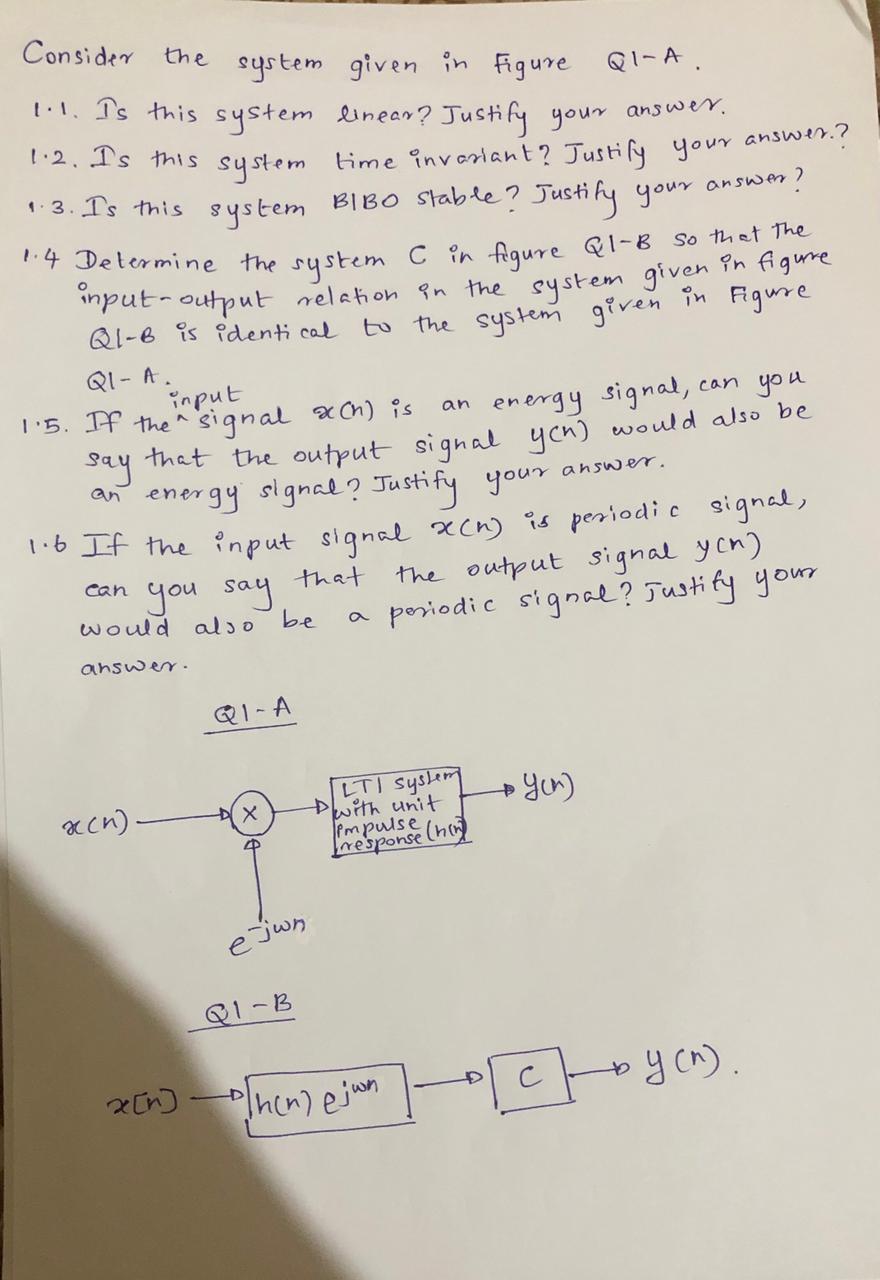 Consider the system given in Figure Q1-A.
1.1. Is this system linear? Justify your answer.
1.2. Is this system time invariant? Justify your answer.?
1.3. Is this system BIBO stable? Justify your answer?
1.4 Determine the system C in figure Q1-B so that the
input-output relation in the system given in figure
Q1-B is identical to the system given in Figure
Q1-A.
input
1.5. If the ^ signal x(n) is an energy signal, can you
say that the output signal y(n) would also be
an energy signal? Justify your answer.
1.6 If the input signal x(n) is periodic signal,
can you say that the output signal y(n)
would also be a periodic signal? Justify your
answer.
Q1-A
x(n)
X
LTI system
with unit
impulse
response (h(n)
y(n)
e^-jwn
Q1-B
x[n]
h(n) e^jwn
C
y(n).